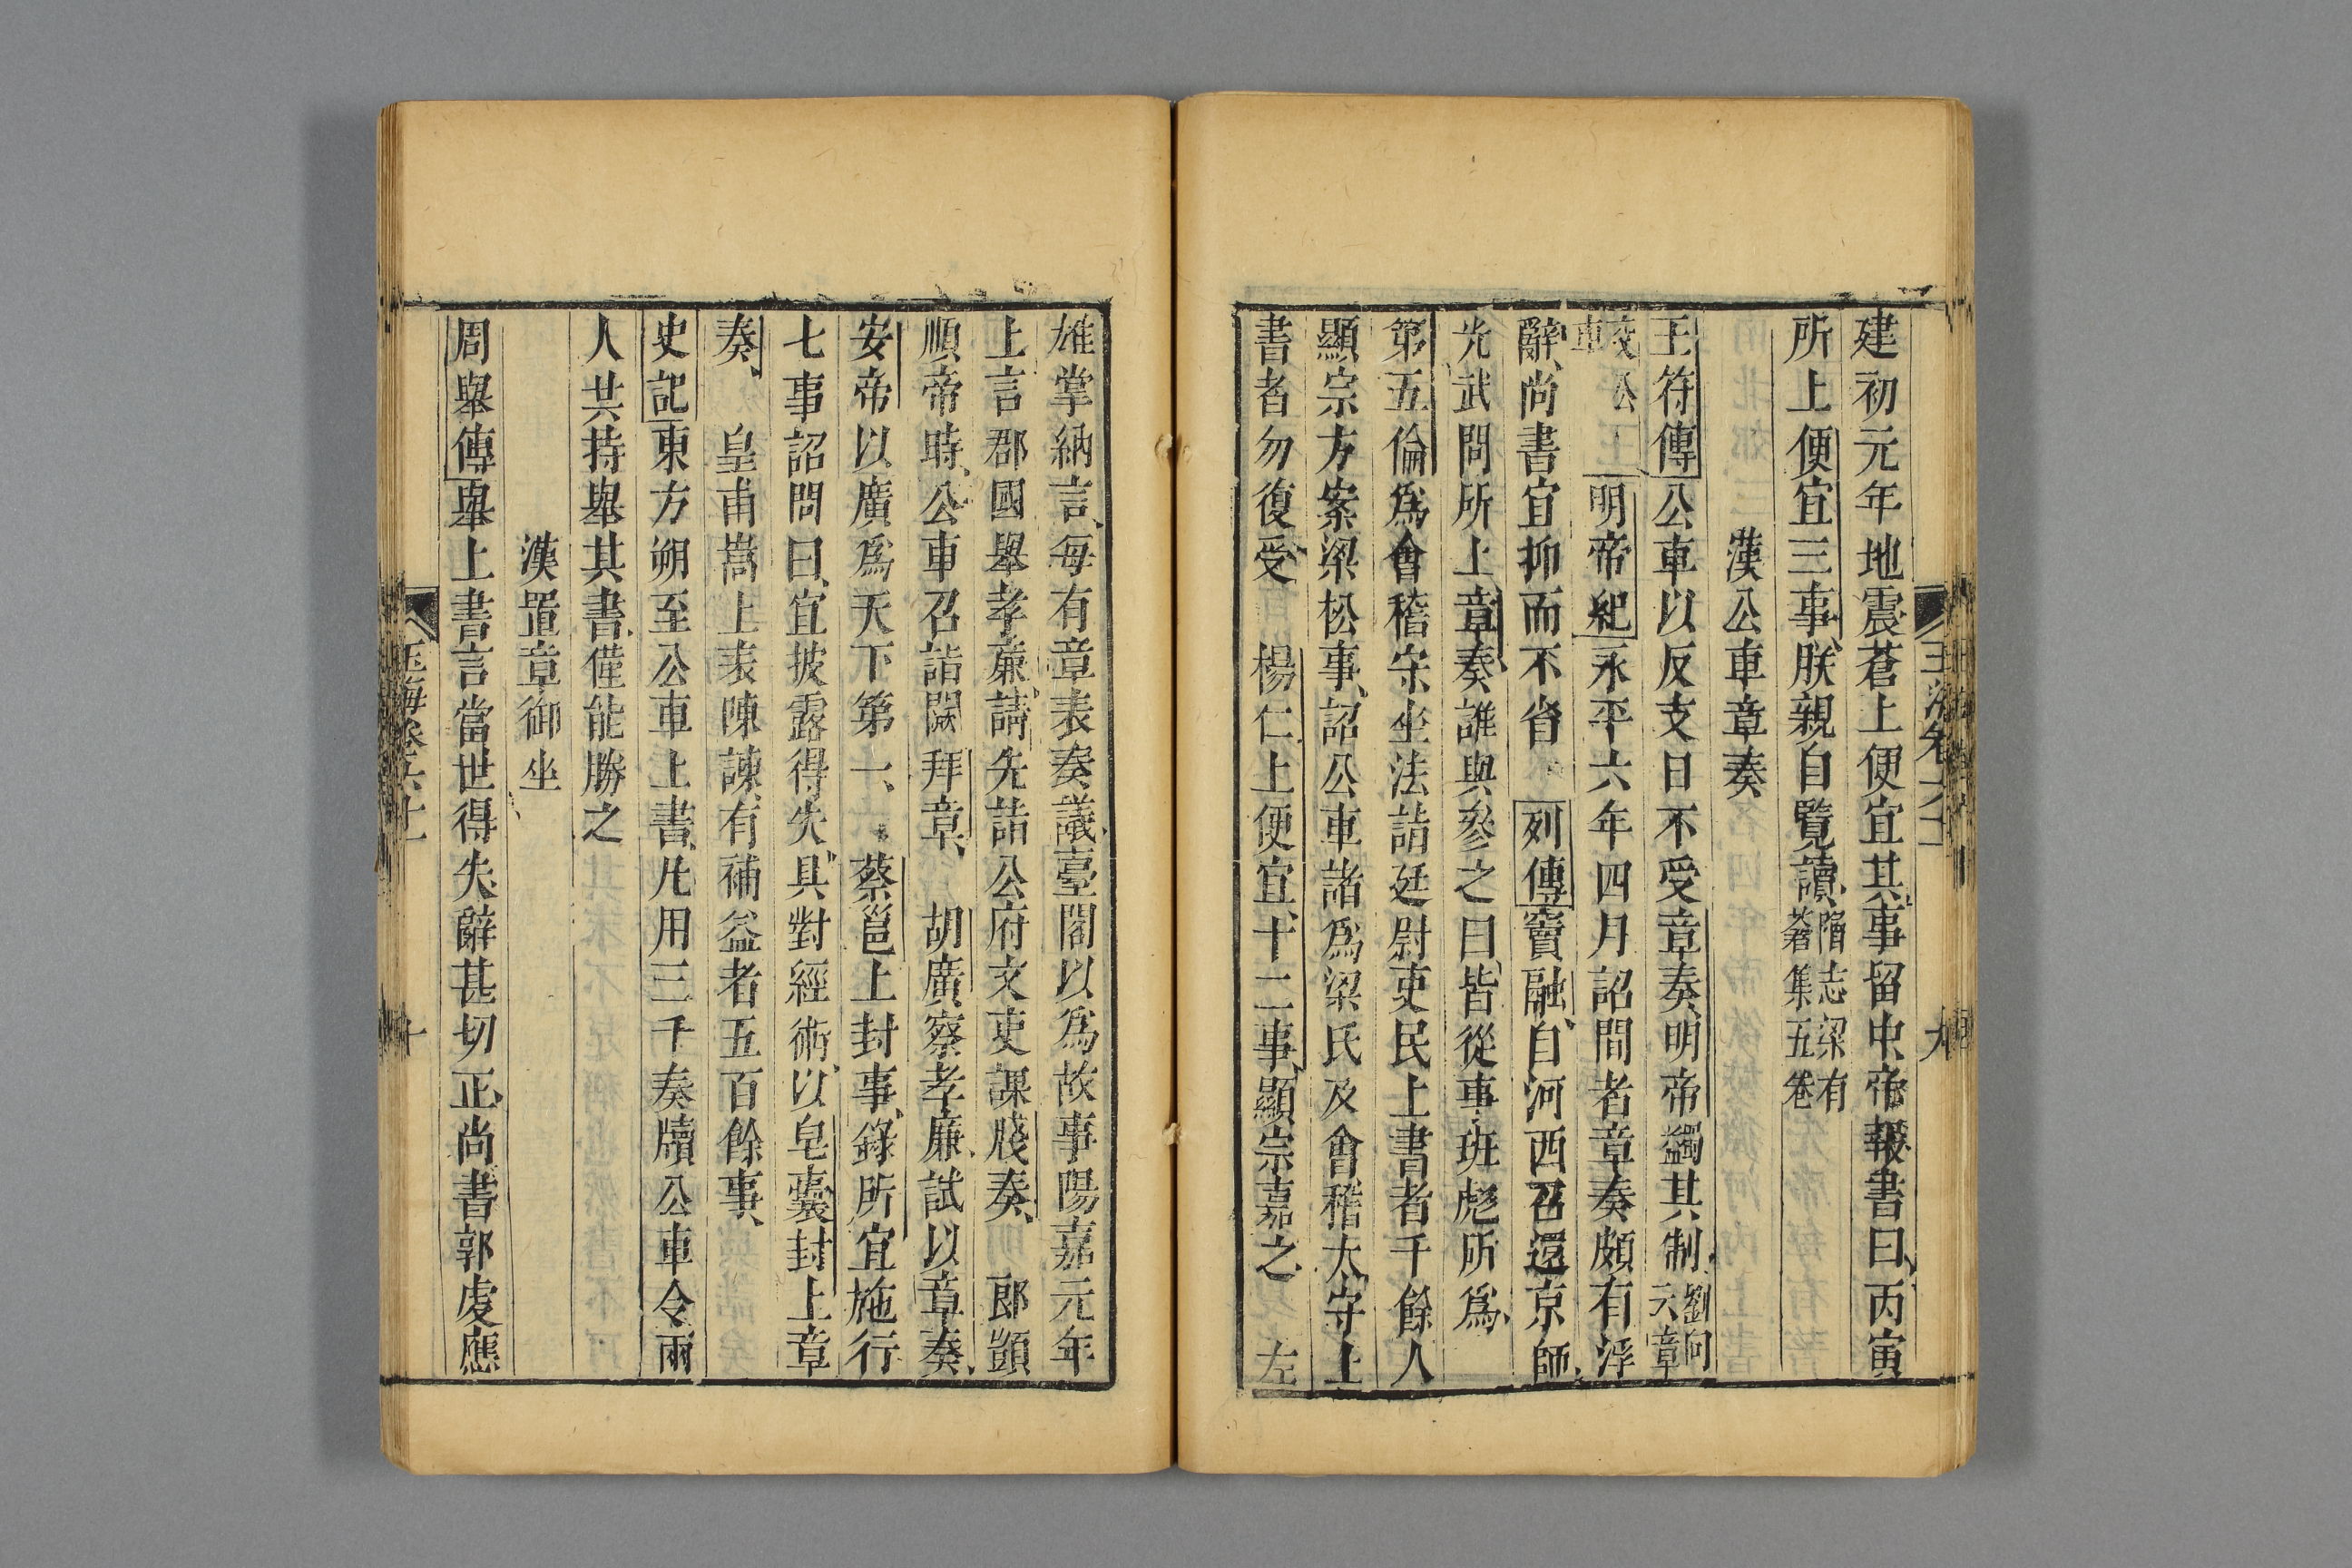 建初元年地震蒼上便宜其事留中帝報書曰丙寅
所上便宜三事朕親自覽讀隋志梁有蒼集五卷
漢公車章奏
王符傳公車以反支日不受章奏明帝蠲其制劉向云章
交公車明帝紀永平六年四月詔間者章奏頗有浮
辭尚書宜抑而不省列傳竇融自河西召還京師
光武問所上章奏誰與參之曰皆從事班彪所為
第五倫為會稽守坐法詣廷尉吏民上書者千餘人
顯宗方案梁松事詔公車諸為梁氏及會稽太守上
書者勿復受 楊仁上便宜十二事顯宗嘉之 左
雄掌納言每有章表奏議臺閣以為故事陽嘉元年
上言郡國舉孝廉請先詣公府文吏課牋奏 郎顗
順帝時公車召詣闕拜章 胡廣察孝廉試以章奏
安帝以廣為天下第一 蔡邕上封事錄所宜施行
七事詔問曰宜披露得失具對經術以皂囊封上章
奏 皇甫嵩上表陳諫有補益者五百餘事
史記東方朔至公車上書凡用三千奏牘公車令兩
人共持舉其書僅能勝之
漢置章御坐
周舉傳舉上書言當世得失辭甚切正尚書郭虔應
玉海卷六十一 十